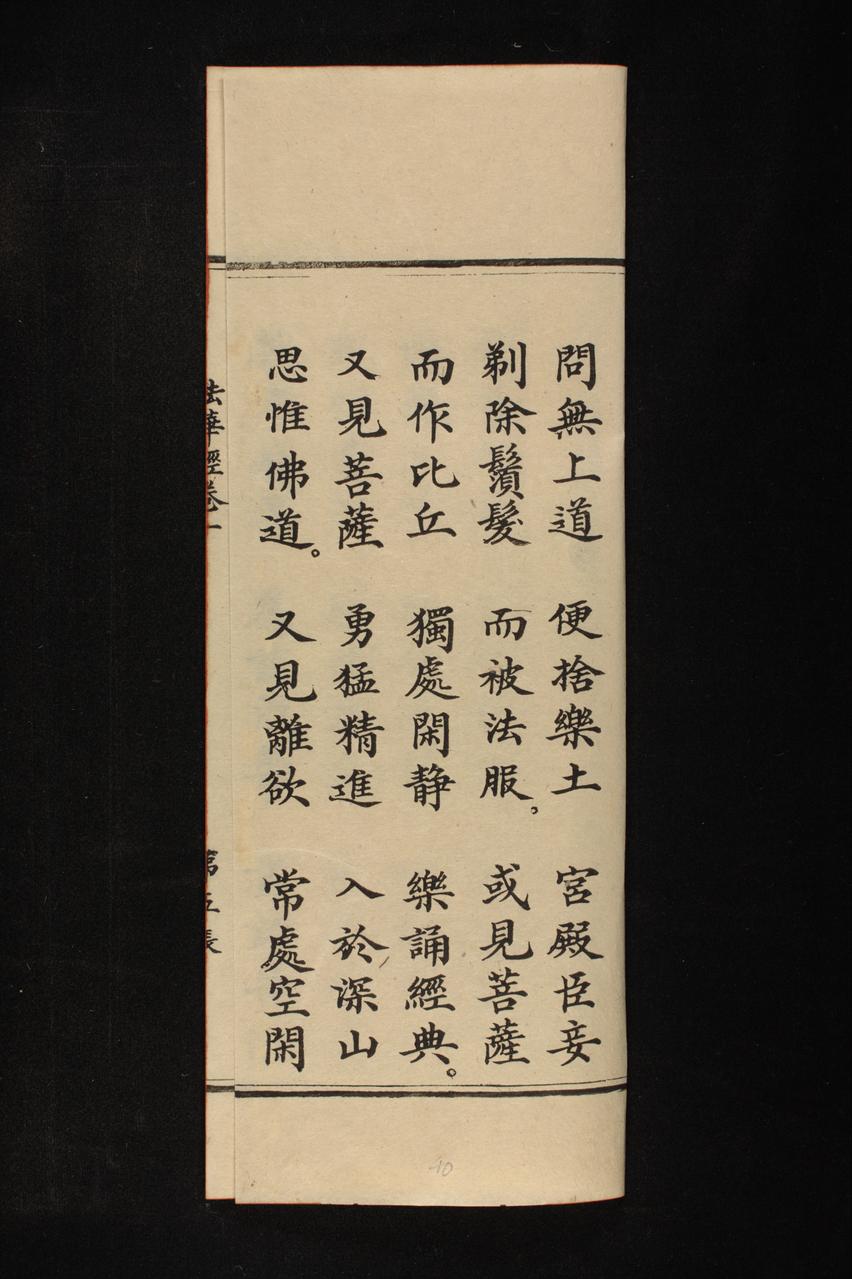 問無上道 便捨樂土 宮殿臣妾
剃除鬚髮 而被法服。 或見菩薩
而作比丘 獨處閑静 樂誦經典。
又見菩薩 勇猛精進 入於深山
思惟佛道。 又見離欲 常處空閑
法華經卷一 第五張
10